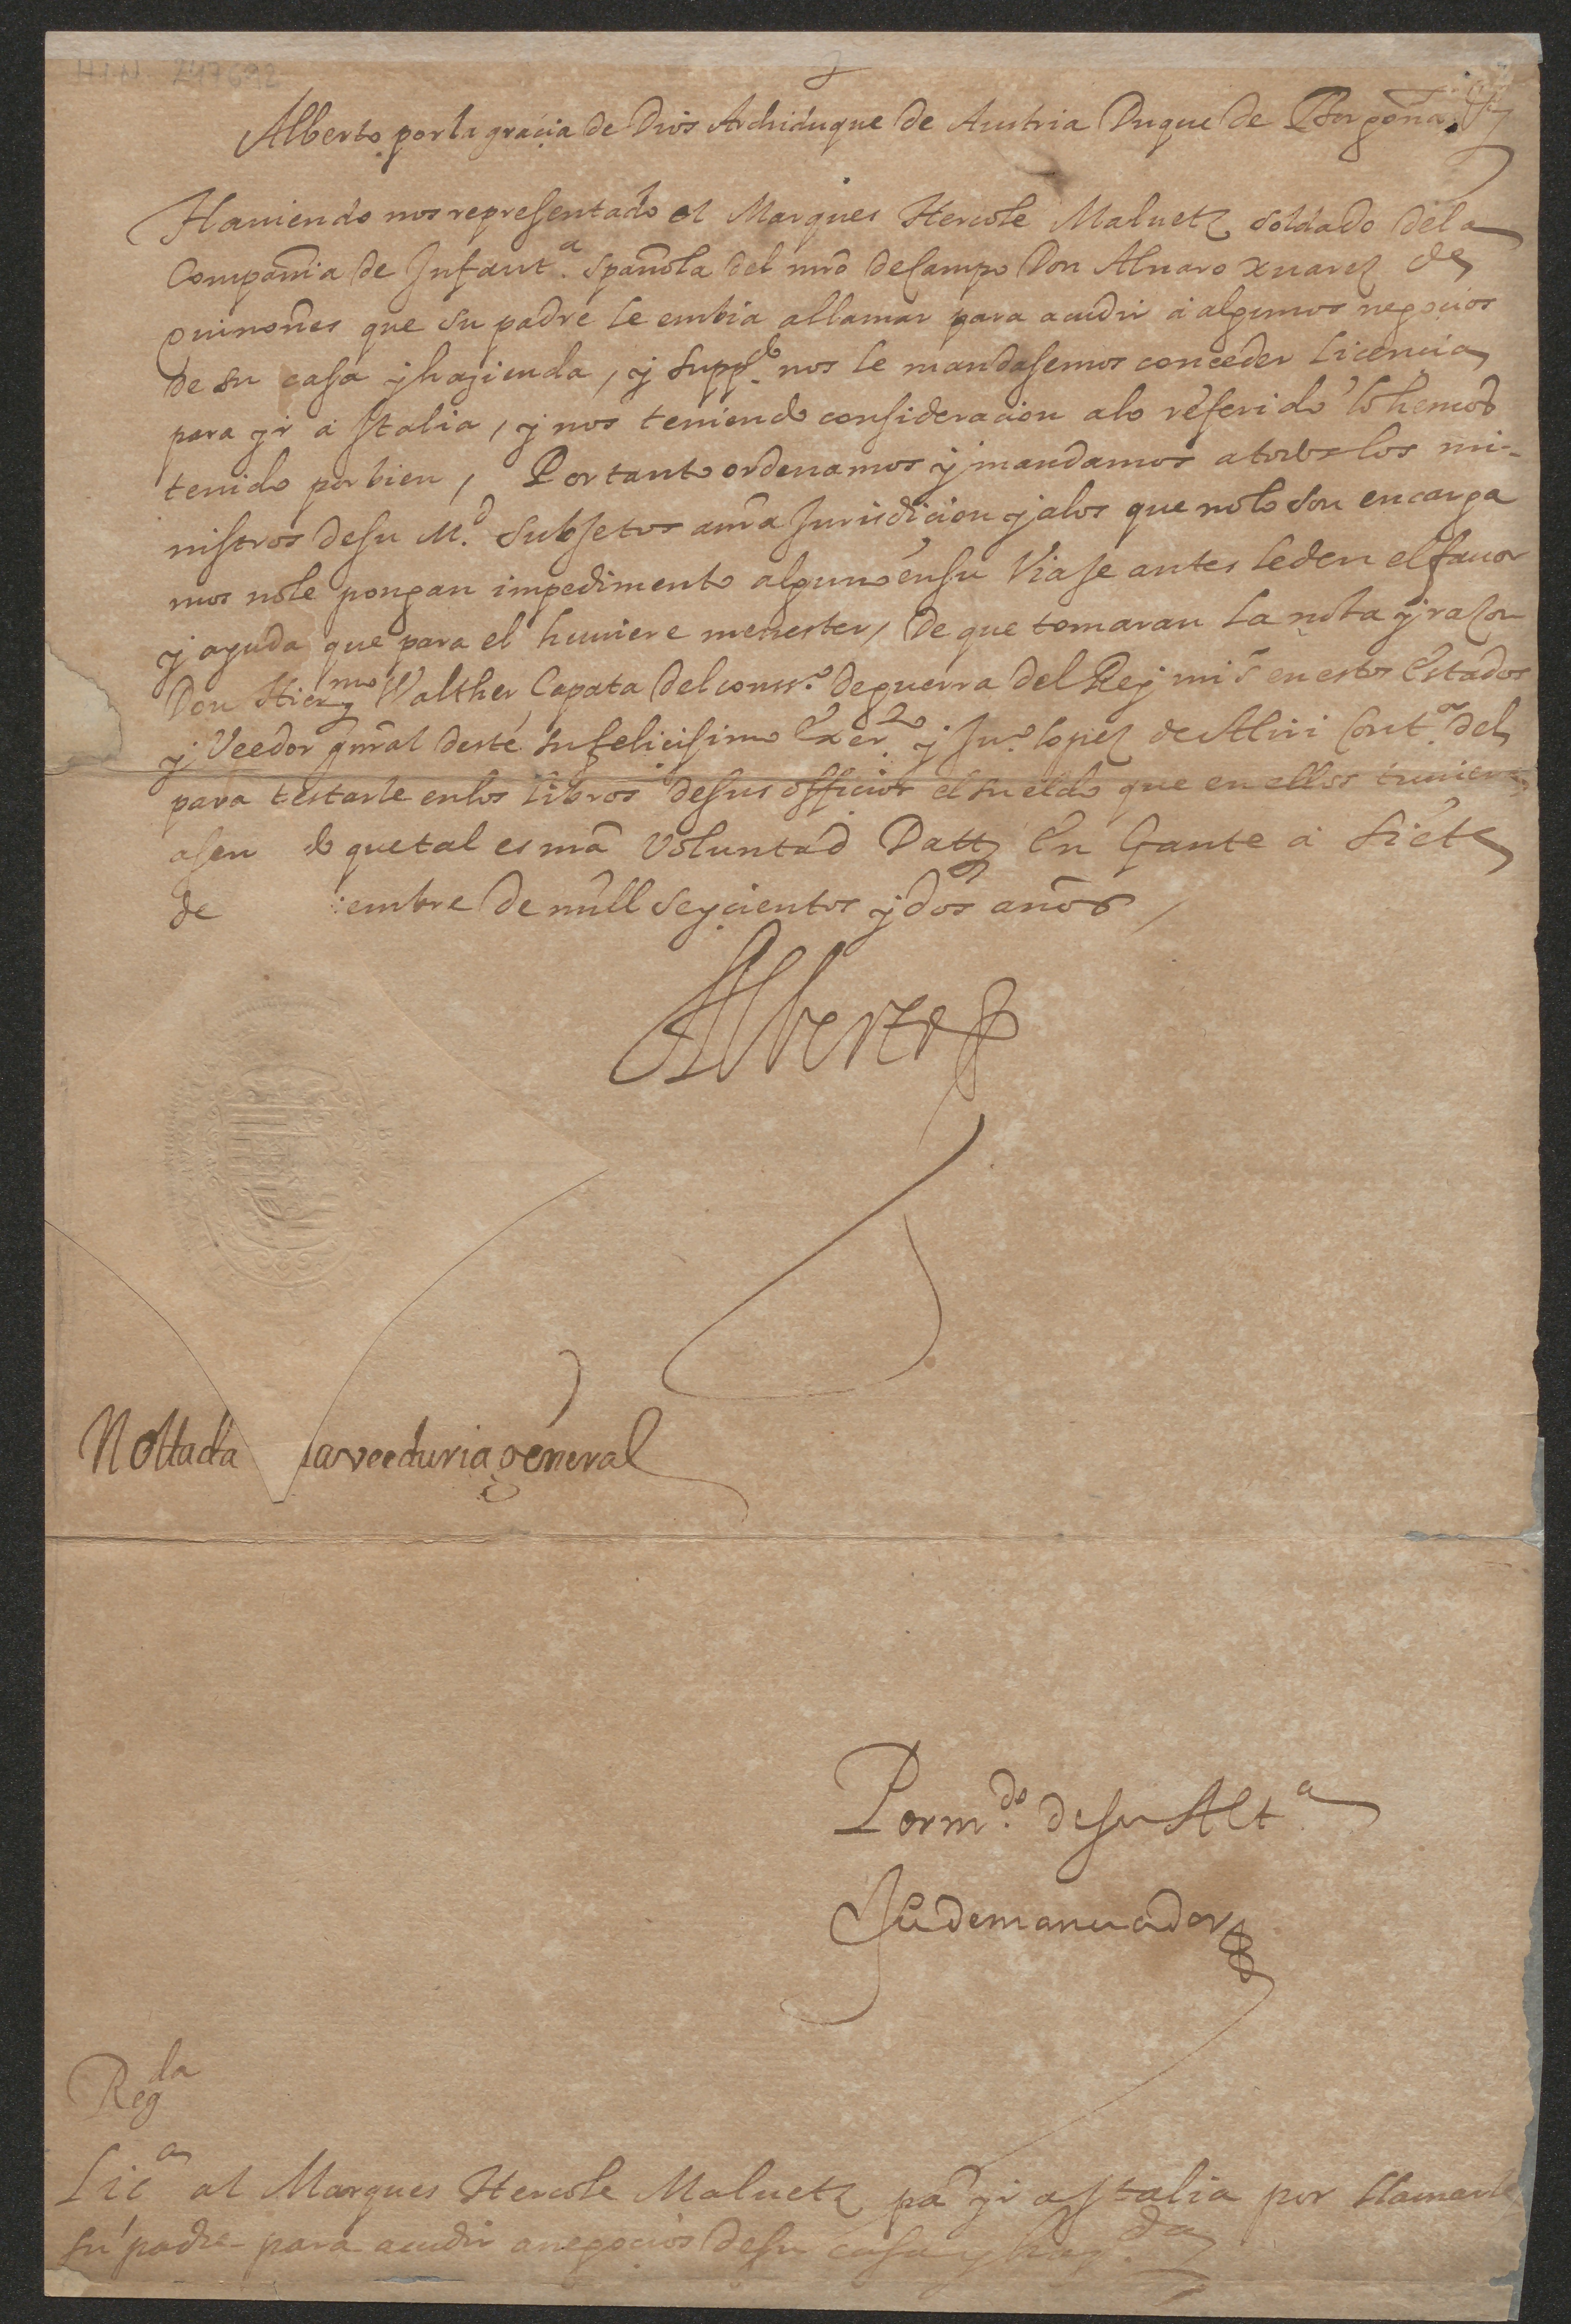 H.I.N. 247692
Alberto por la gracia de Dios Archiduque de Austria Duque de Borgoña &
Hauiendo nos representado el Marques Hercole Maluetz soldado dela
Compañia de Infant.a española del mro de Campo Don Aluaro xuarez de
quiñones que su padre le embia allamar para acudir a algunos negocios
de su casa y hazienda, y supp.do nos le mandasemos conceder Licencia
para yr a Italia, y nos teniendo consideracion alo referido lo hemos
tenido por bien, Portanto ordenamos y mandamos atodos los mi-
nistros desu M.d subjetos anra Jurisdicion y alos que nolo son encarga
mos nole pongan impedimento alguno ensu Viaje antes leden el fauor
y ayuda que para el huuiere menester, de que tomaran la nota y razon
Don Hier.mo Walther Capata del cons.o deguerra del Rey mi s.r en estos Estados
y Veedor gnral deste su felicisimo Exer.to y Ju.o lopez de Aliri Cont.or del
para testarle enlos libros desus officios el sueldo que en ellos tuuiere
asen quetal es nra Voluntad Datt en Gante a siete
de embre de mill seycientos y dos años
Alberto
Nottada laveeduria general
Por m.do de su Alt.a
Reg.da
Lic.a al Marques Hercole Maluetz pa yr a Italia por llamarle
su padre para acudir a negocios desu casa y haz.da